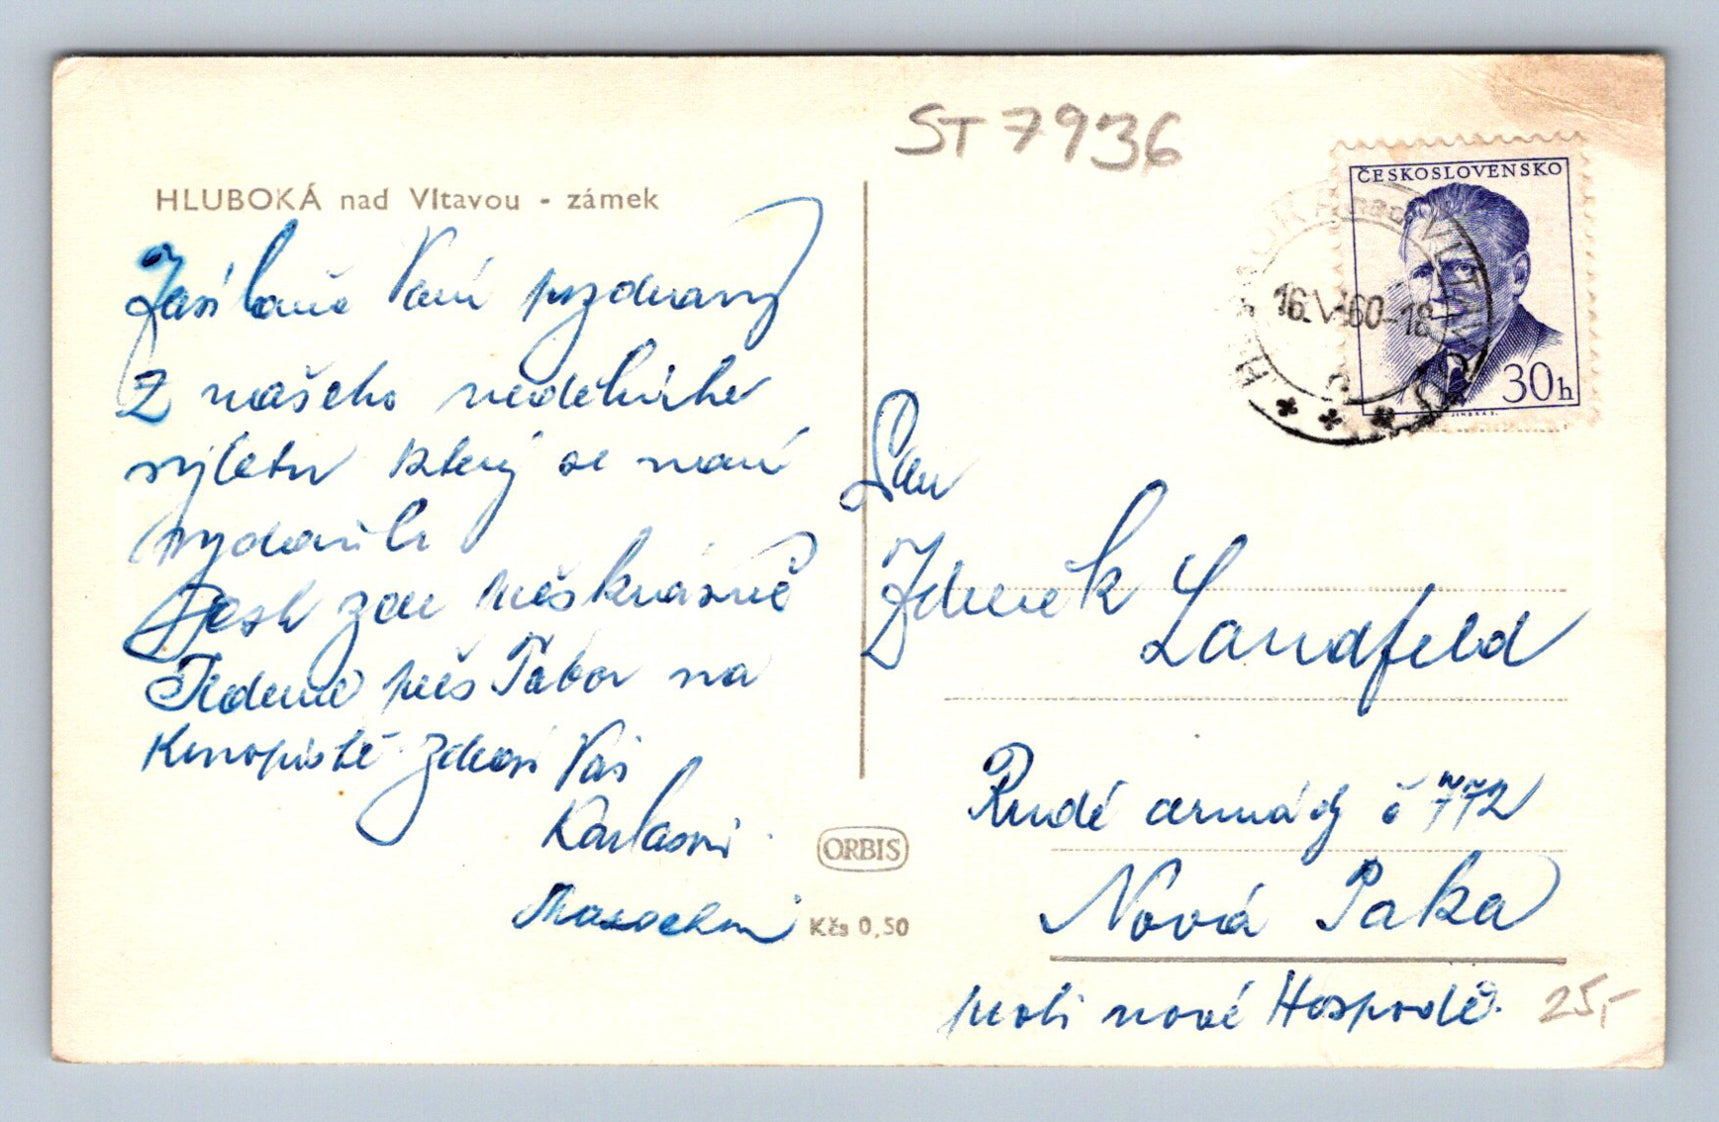 ST 7936
HLUBOKÁ nad Vltavou - zámek
ČESKOSLOVENSKO
30h
16.V.60-18
Zasíláme Vám pozdravy
Z našeho nedělního
výletu který se nám
vydařil
Jest zde překrásně
Jedeme přes Tábor na
Konopiště Zdraví Vás
Pan
Zdeněk Landfeld
Rudé armády č 772
Nová Paka
proti nové Hospodě.
ORBIS
Kčs 0,50
25,-